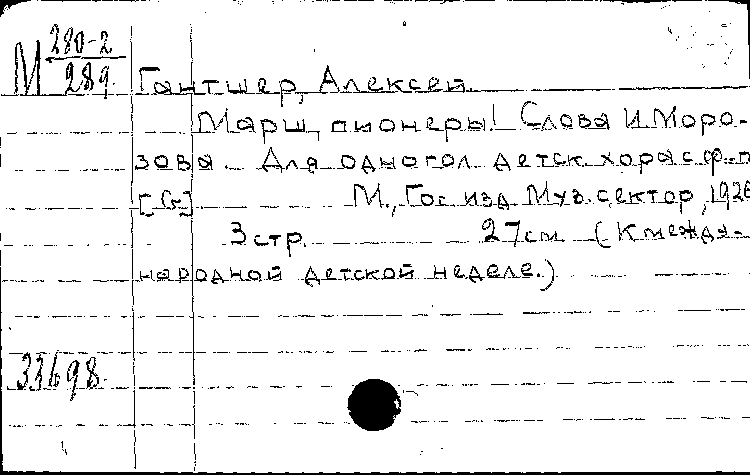 М 280-2
289.
Гантшер, Алексей.
Марш, пионеры! Слова И. Моро-
зова. Для одногол. детск. хора с ф-п
[G]
М., Гос. изд. Муз. сектор, 1926
3 стр. 27 см. (К между-
народной детской неделе.)
33698